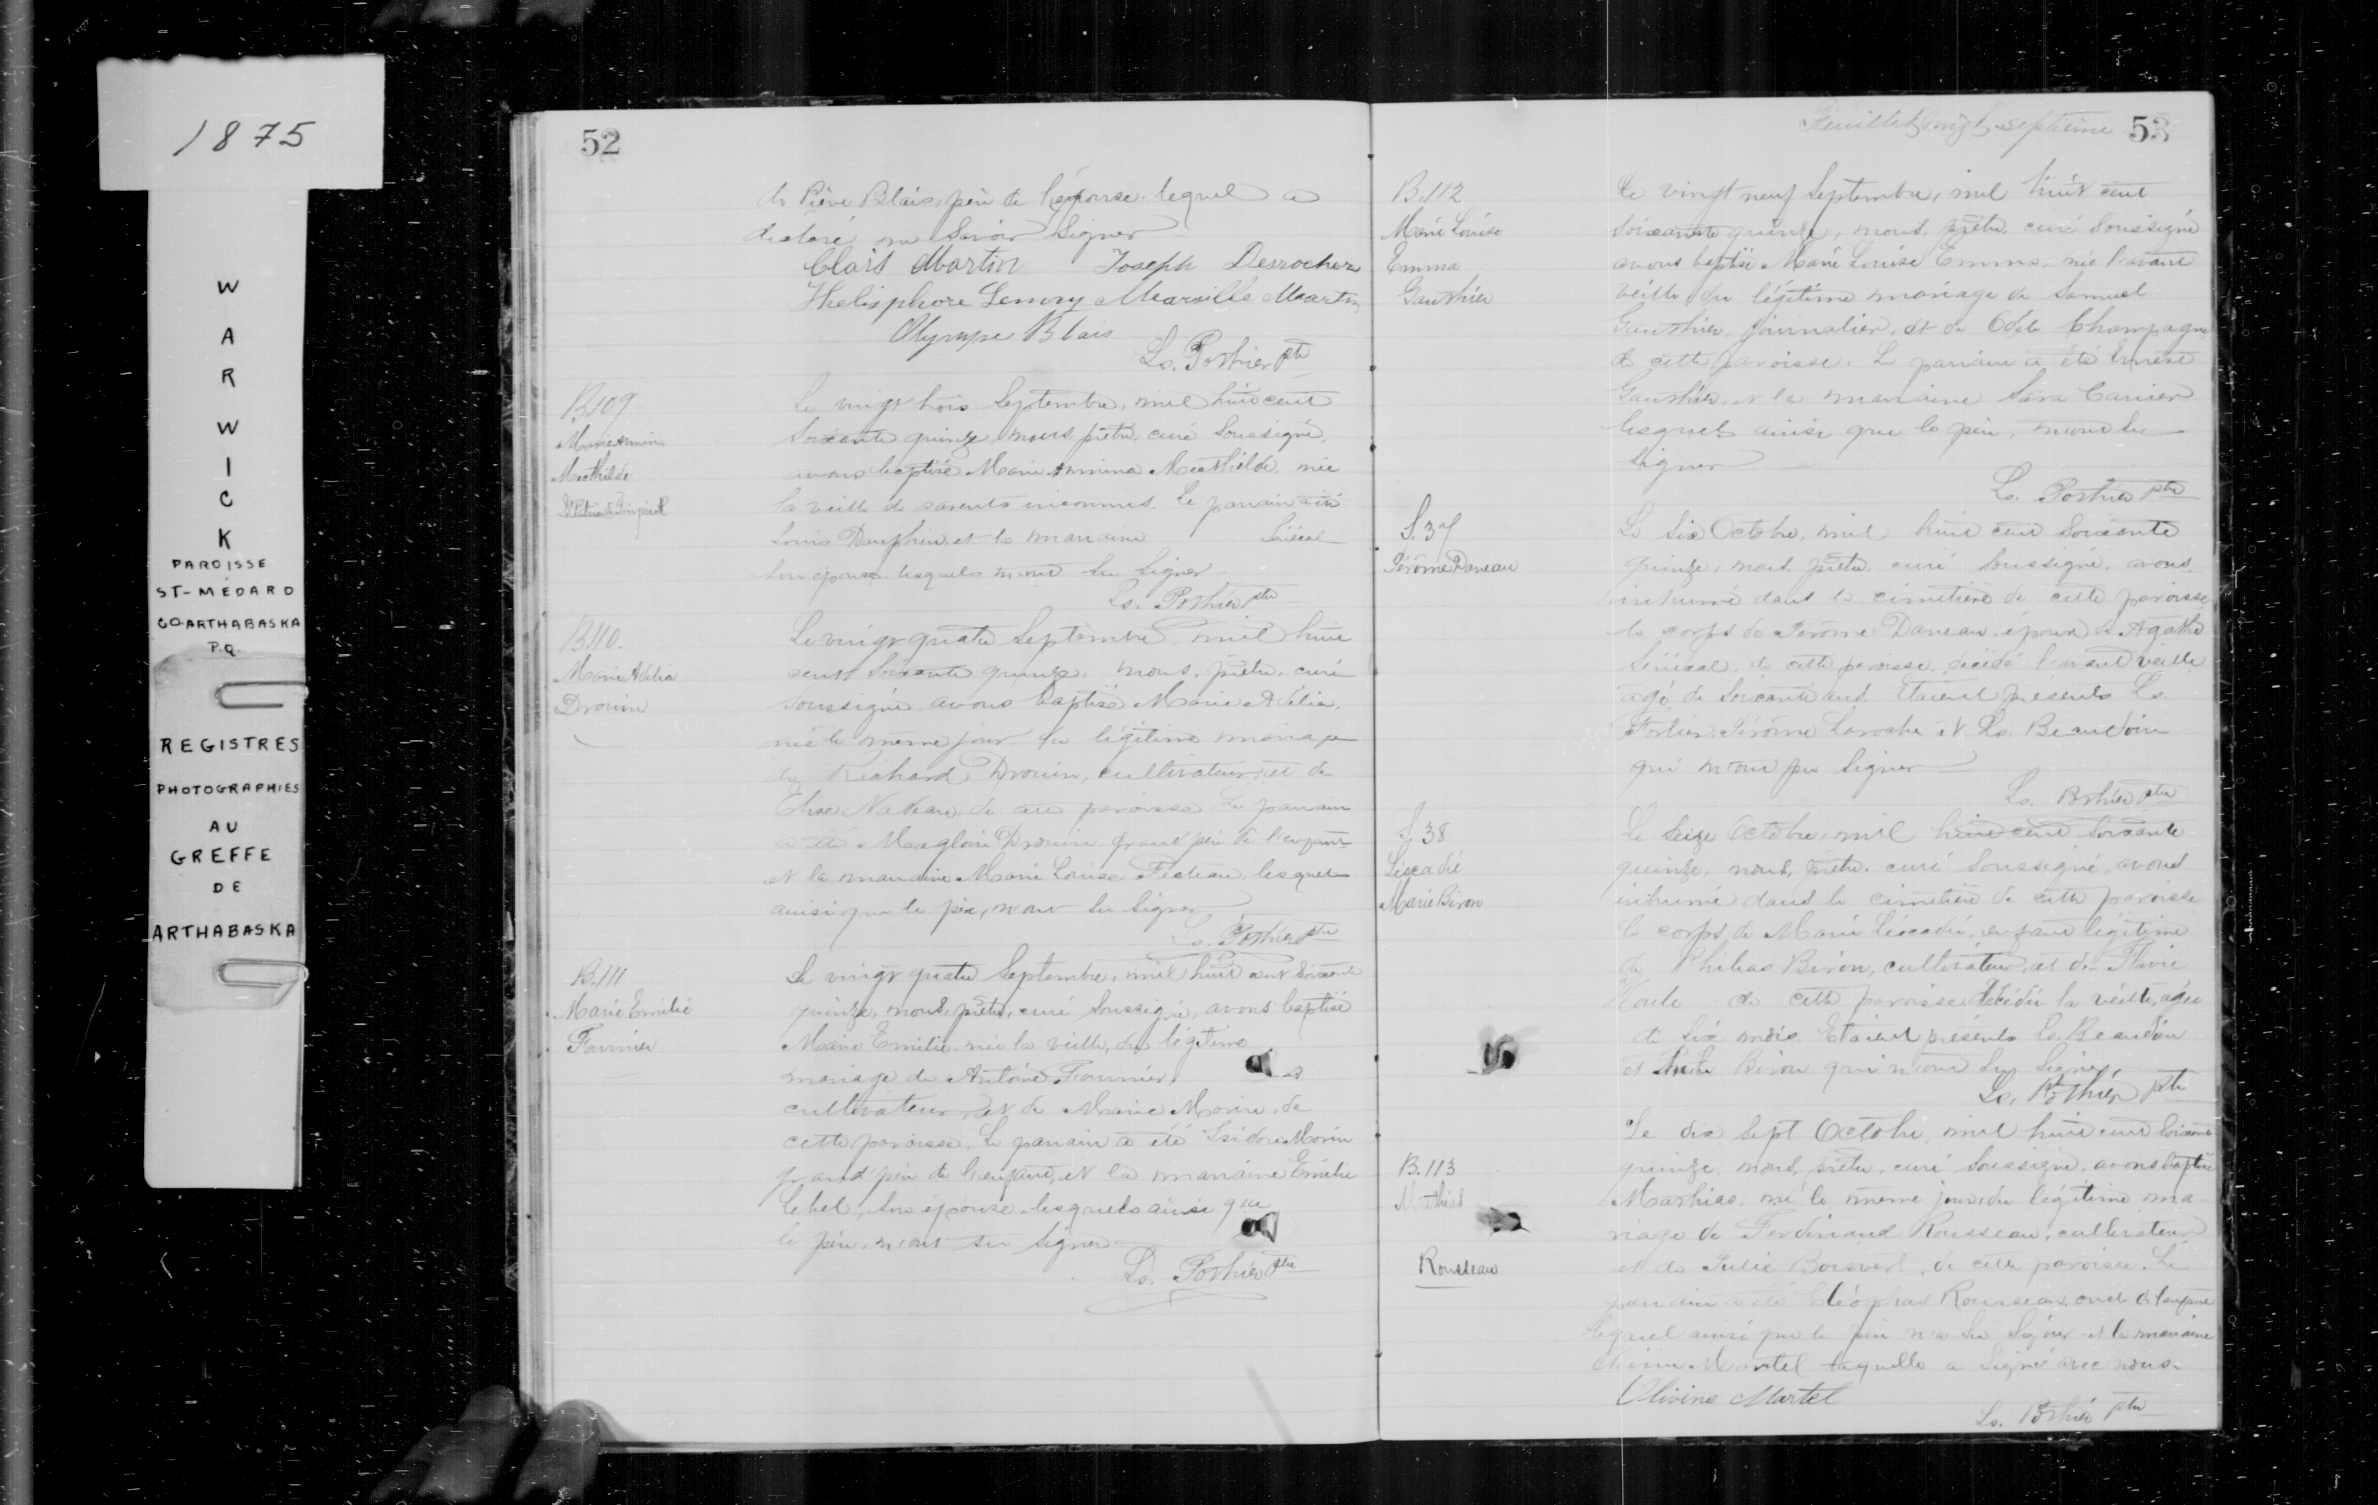 1875
W
A
R
W
I
C
K
PAROISSE
ST-MÉDARD
CO-ARTHABASKA
P.Q.
REGISTRES
PHOTOGRAPHIES
AU
GREFFE
DE
ARTHABASKA
52
de Blais, père de l'épouse lequel a
déclaré ne savoir signer
Martin Joseph Desrochers
Martin
Olympe Blais
Ls. Pothier ptr
B109
Mathilde
Le vingt trois Septembre, mil huit cent
soixante quinze nous prêtre, curé soussigné,
avons baptisé Marie Mathilde née
la veille de parents inconnus. Le parrain a été
Louis Dauphin et la marraine Sénécal
son épouse lesquels n'ont su signer
Ls. Pothier ptr
B110.
Marie Adélia
Drouin
Le vingt quatre Septembre mil huit
cent soixante quinze, nous, prêtre, curé
soussigné avons baptisé Marie Adélia,
née le même jour du légitime mariage
de Richard Drouin, cultivateur, et de
de cette paroisse Le parrain
a été Magloire Drouin grand père de l'enfant
et la marraine Marie Louise lesquels
ainsi que le père, n'ont su signer
Ls. Pothier ptr
B.111
Marie Emilie
Fournier
Le vingt quatre Septembre, mil huit cent soixante
quinze, nous, prêtre, curé soussigné, avons baptisé
Marie Emilie née la veille, du légitime
mariage de Antoine Fournier
cultivateur, et de Marie Morin, de
cette paroisse. Le parrain a été Isidore Morin
grand père de l'enfant, et la marraine Emilie
Lebel, son épouse lesquels ainsi que
le père, n'ont su signer
Ls. Pothier ptr
Feuillet vingt septième 53
B.112
Marie Louise
Emma
Gauthier
Le vingt neuf Septembre, mil huit cent
soixante quinze, nous, prêtre curé soussigné
avons baptisé Marie Louise Emma née l'avant
veille du légitime mariage de Samuel
Gauthier, journalier, et de Odile Champagne
de cette paroisse. Le parrain a été
Gauthier, et la marraine Sara Carrier
lesquels ainsi que le père, n'ont su
signer
Ls. Pothier ptr
S.37
Jérôme Daneau
Le six Octobre, mil huit cent soixante
quinze, nous prêtre curé soussigné, avons
inhumé dans le cimetière de cette paroisse
le corps de Jérôme Daneau, époux de Agathe
Sénécal, de cette paroisse, décédé l'avant veille
âgé de soixante ans. Etaient présents Ls.
Jérôme Laroche et Ls. Beaudoin
qui n'ont pu signer
Ls. Pothier ptr
S.38
Léocadie
Marie Biron
Le seize Octobre, mil huit cent soixante
quinze, nous, prêtre, curé soussigné, avons
inhumé dans le cimetière de cette paroisse
le corps de Marie Léocadie, enfant légitime
de Philias Biron, cultivateur, et de Flavie
Houle de cette paroisse décédée la veille, âgée
de six mois. Etaient présents Ls. Beaudoin
et Biron qui n'ont su signer
Ls. Pothier ptr
B.113
Mathias
Rousseau
Le dix sept Octobre, mil huit cent soixante
quinze, nous, prêtre, curé soussigné, avons baptisé
Mathias, né le même jour du légitime ma
riage de Ferdinand Rousseau, cultivateur
et de Julie Boisvert, de cette paroisse. Le
parrain a été Cléophas Rousseau, oncle de l'enfant
lequel ainsi que le père n'a su signer et la marraine
Olivine Martel laquelle a signé avec nous.
Olivine Martel
Ls. Pothier ptr